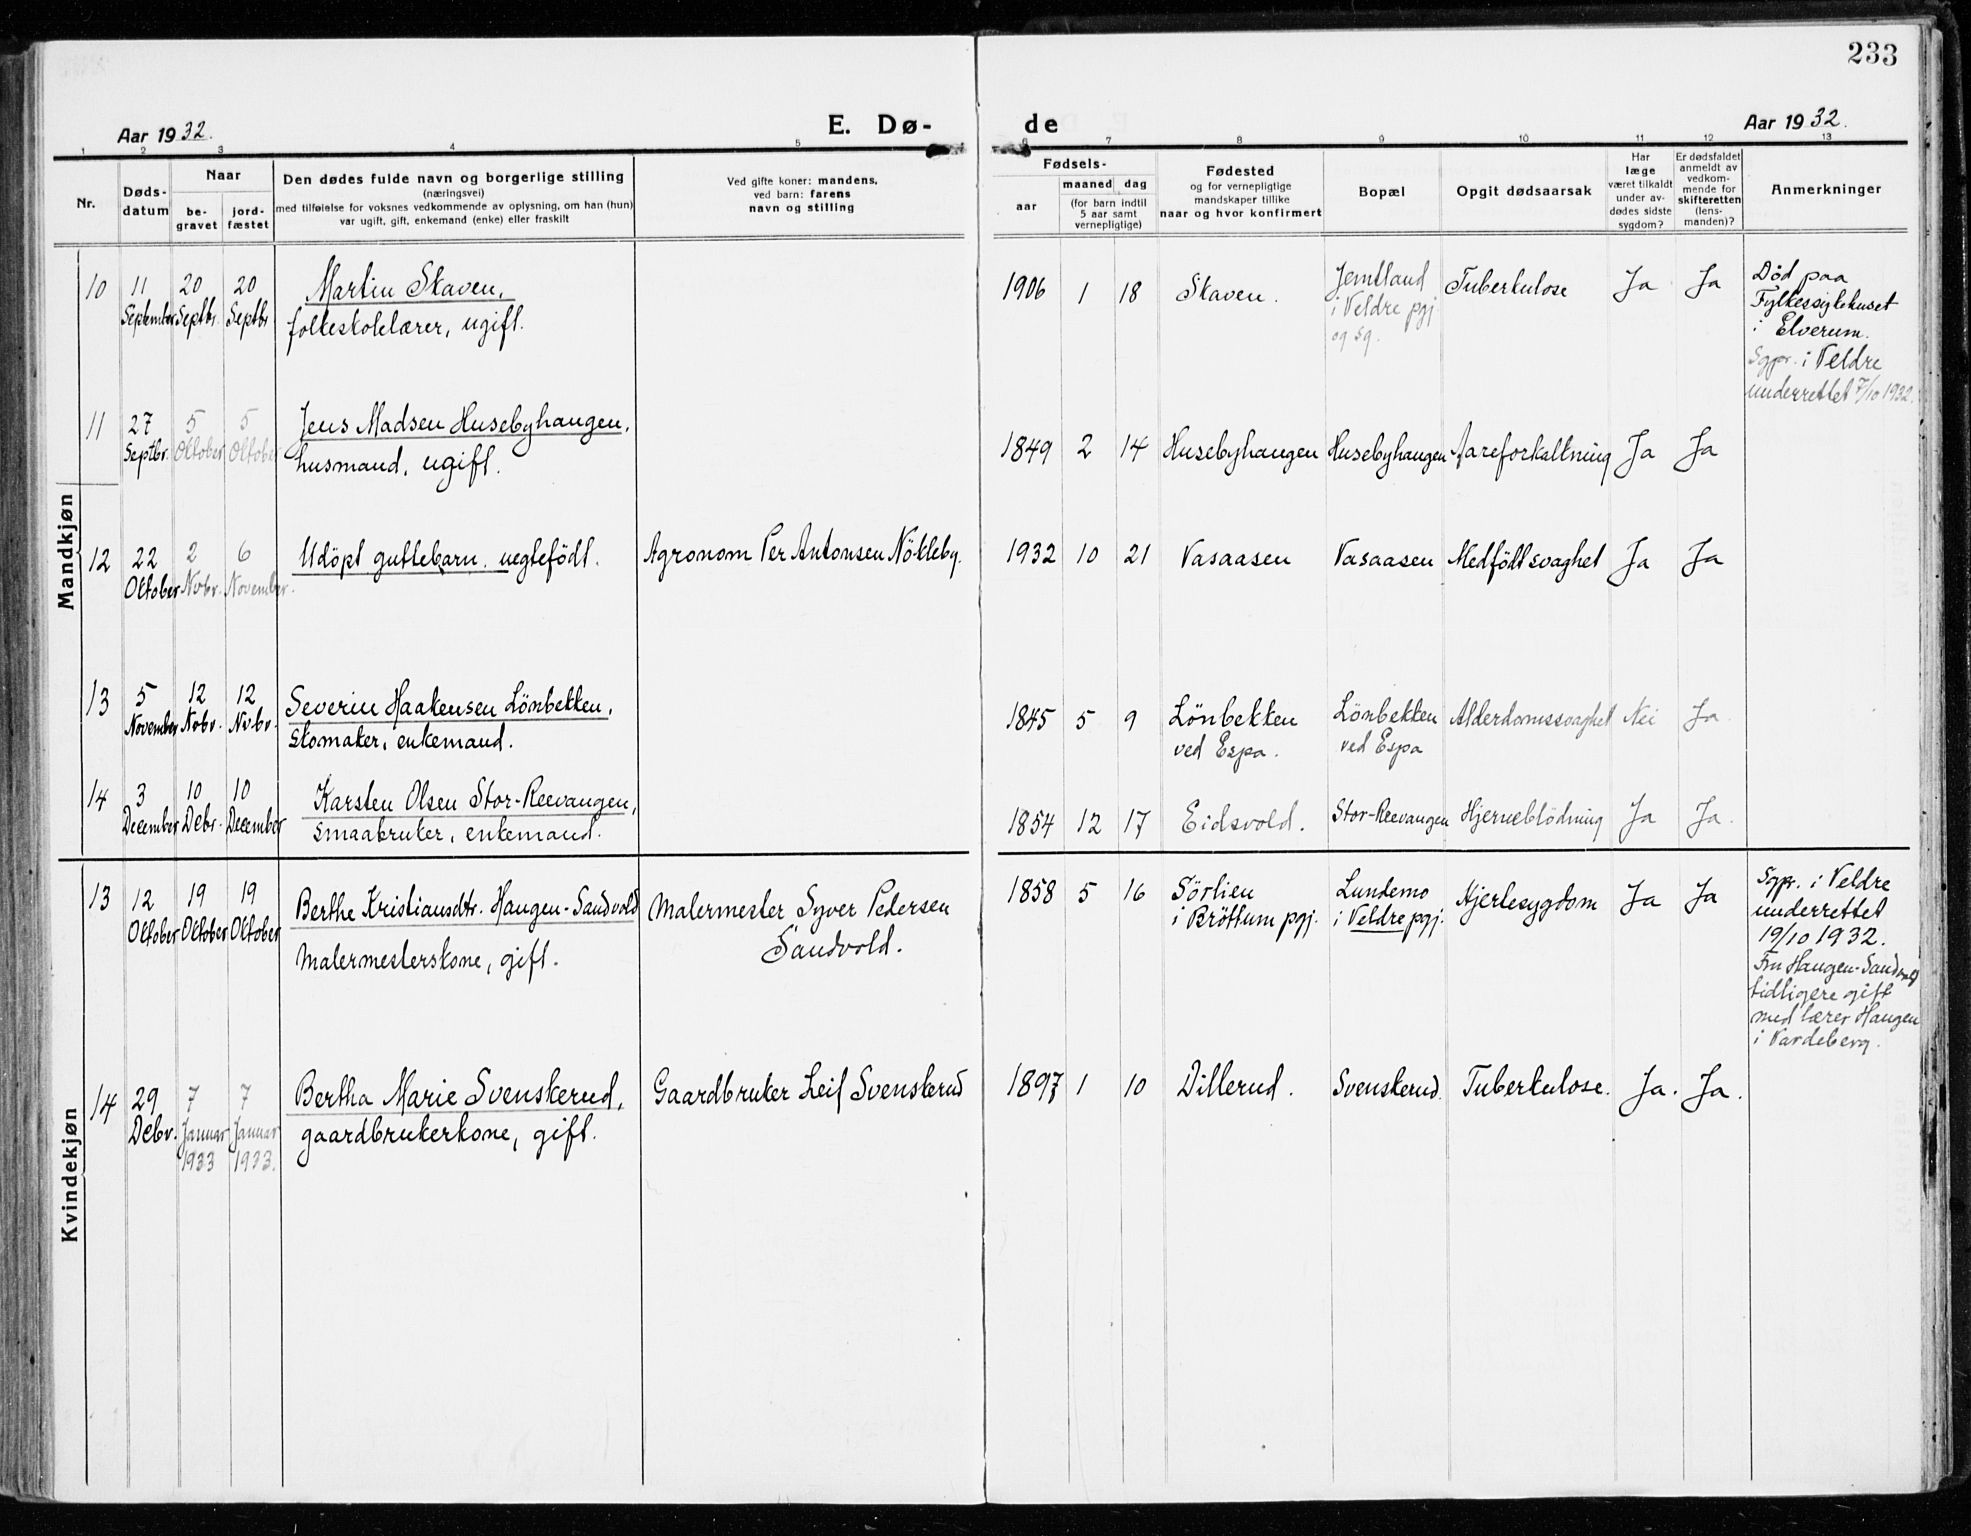 233
Aar 1932.
E. Dø-
de
Aar 1932.
1 2 3 4 5 6 7 8 9 10 11 12 13
Nr.
Døds-
datum
Naar
be-
gravet
jord-
fæstet
Den dødes fulde navn og borgerlige stilling
(næringsvei)
med tilføielse for voksnes vedkommende av oplysning, om han (hun)
var ugift, gift, enkemand (enke) eller fraskilt
Ved gifte koner: mandens,
ved barn: farens
navn og stilling
Fødsels-
aar
maaned dag
(for barn indtil
5 aar samt
vernepligtige)
Fødested
og for vernepligtige
mandskaper tillike
naar og hvor konfirmert
Bopæl
Opgit dødsaarsak
Har
læge
været tilkaldt
under av-
dødes sidste
sygdom?
Er dødsfaldet
anmeldt av
vedkom-
mende for
skifteretten
(lens-
manden)?
Anmerkninger
Mandkjøn
10
11
September
20
Septbr.
20
Septbr
Martin Skaven,
folkeskolelærer, ugift.
1906 1 18
Skaven.
Jemtland
i Veldre pgj
og sg.
Tuberkulose
Ja
Ja
Død paa
Fylkessykehuset
i Elverum.
Sgpr. i Veldre
underrettet 7/10 1932.
11
27
Septbr.
5
Oktober
5
Oktober
Jens Madsen Husebyhaugen,
husmand, ugift.
1849 2 14
Husebyhaugen
Husebyhaugen
Aareforkalkning
Ja
Ja
12
22
Oktober
2
Nvbr.
6
November.
Udöpt guttebarn. uegtefödt.
Agronom Per Antonsen Nökleby.
1932 10 21
Vasaasen
Vasaasen
Medfödt svaghet
Ja
Ja
13
5
November
12
Nvbr.
12
Nvbr.
Severin Haakensen Lönbekken,
skomaker, enkemand.
1845 5 9
Lönbekken
ved Espa.
Lönbekken
ved Espa
Alderdomssvaghet
Nei
Ja
14
3
December
10
Debr.
10
December
Karsten Olsen Stor-Reevangen,
smaabruker, enkemand.
1854 12 17
Eidsvold.
Stor-Reevangen
Hjerneblödning
Ja
Ja.
Kvindekjøn
13
12
Oktober
19
Oktober
19
Oktober
Berthe Kristiansdtr. Haugen-Sandvold
malermesterskone, gift.
Malermester Syver Pedersen
Sandvold.
1858 5 16
Sörlien
i Bröttum pgj.
Lundemo
i Veldre pgj.
Hjertesygdom
Ja
Ja
Sgpr. i Veldre
underrettet
19/10 1932.
Fru Haugen-Sandvold
tidligere gift
med lærer Haugen
i Vardeberg.
14
29
Debr.
7
Januar
1933
7
Januar
1933.
Bertha Marie Svenskerud,
gaardbrukerkone, gift.
Gaardbruker Leif Svenskerud
1897 1 10
Dillerud.
Svenskerud.
Tuberkulose.
Ja.
Ja.